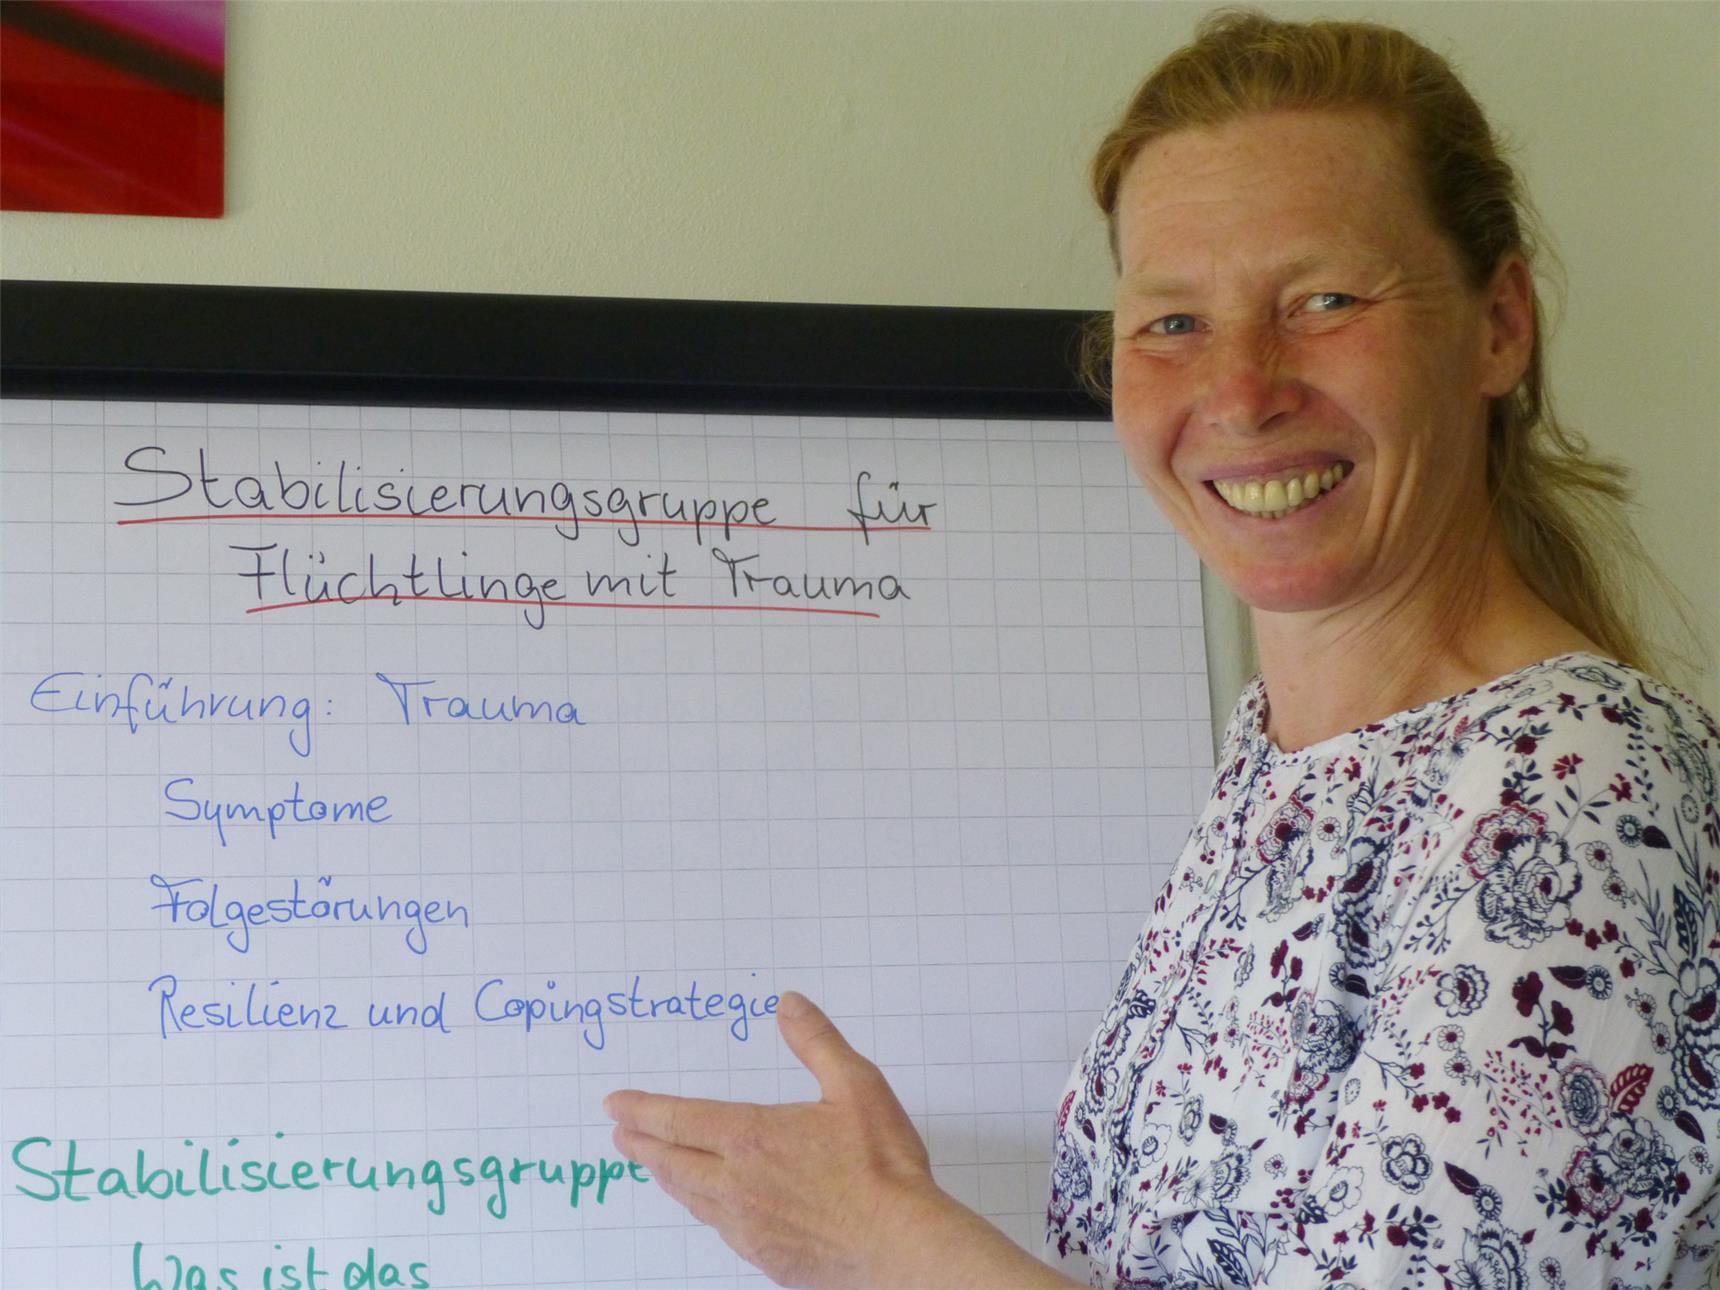 Stabilisierungsgruppe für
Flüchtlinge mit Trauma
Einführung: Trauma
Symptome
Folgestörungen
Resilienz und Copingstrategie
Stabilisierungsgruppe
Was ist das